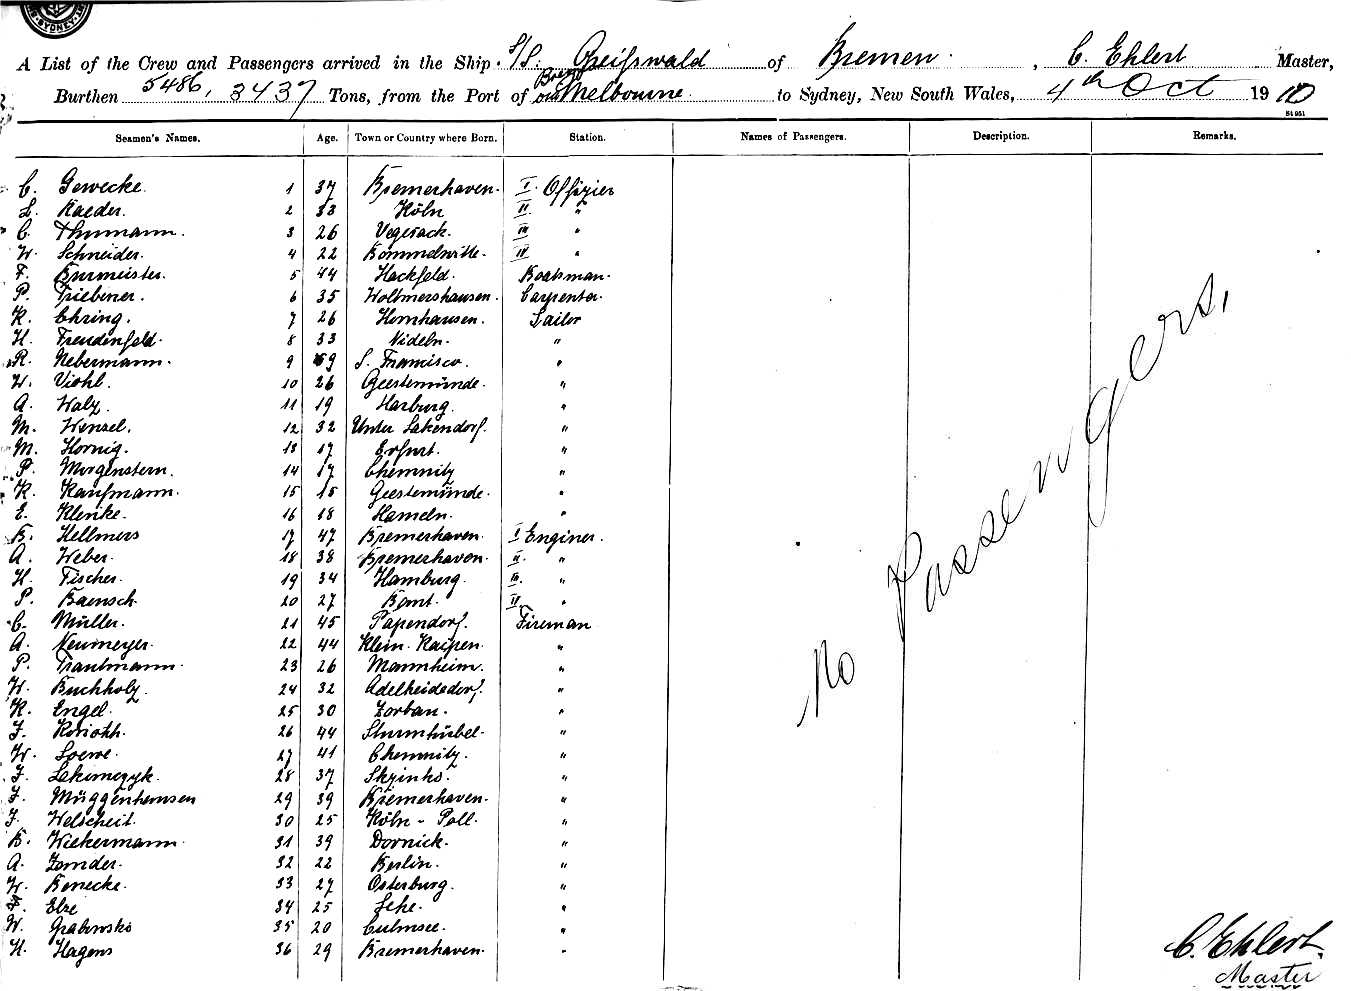 SYDNEY
A List of the Crew and Passengers arrived in the Ship S/S. Greifswald of Bremen, C. Ehlert Master,
Burthen 5486, 3437 Tons, from the Port of Melbourne to Sydney, New South Wales, 4th Oct 1910
St 951
Seamen's Names. Age. Town or Country where Born. Station. Names of Passengers. Description. Remarks.
C. Gewecke. 1 37 Bremerhaven. I. Offizier
L. Raeder. 2 33 Köln II. "
C. Thumann. 3 26 Vegesack. III "
W. Schneider. 4 22 IV "
F. Burmeister. 5 44 Hackfeld. Boatsman.
P. Triebener. 6 35 Woltmershausen. Carpenter.
K. Ehring. 7 26 Hornhausen. Sailor
H. Freudenfeld. 8 33 Nideln. "
R. Nebermann. 9 S. Francisco. "
W. Viohl. 10 26 Geestemünde. "
A. Walz. 11 19 Harburg. "
M. Wenzel. 12 32 Unter "
M. Hornig. 13 17 Erfurt. "
P. Morgenstern. 14 17 Chemnitz "
K. Kaufmann. 15 15 Geestemünde. "
E. Klenke. 16 18 Hameln. "
B. Hellmers 17 47 Bremerhaven. I Enginer.
A. Weber. 18 38 Bremerhaven. II. "
H. Fischer. 19 34 Hamburg. III. "
P. Baensch. 20 27 Bant. "
C. Müller. 21 45 Papendorf. Fireman
A. Neumeyer. 22 44 Klein "
P. Trautmann. 23 26 Mannheim. "
W. Buchholz. 24 32 Adelheidsdorf. "
K. Engel. 25 30 Zorbau. "
F. 26 44 Sturmhübel. "
W. Loewe. 27 41 Chemnitz. "
F. 28 37 "
F. Müggenhemsen 29 39 Bremerhaven. "
F. Welscheit. 30 25 Köln - Poll. "
B. Wickermann. 31 39 Dornick. "
A. Zander. 32 22 Berlin. "
W. Benecke. 33 27 Osterburg. "
F. Elze 34 25 Lehe. "
W. Grabowski 35 20 Culmsee. "
H. Hagens 36 29 Bremerhaven. "
No Passengers.
C. Ehlert.
Master